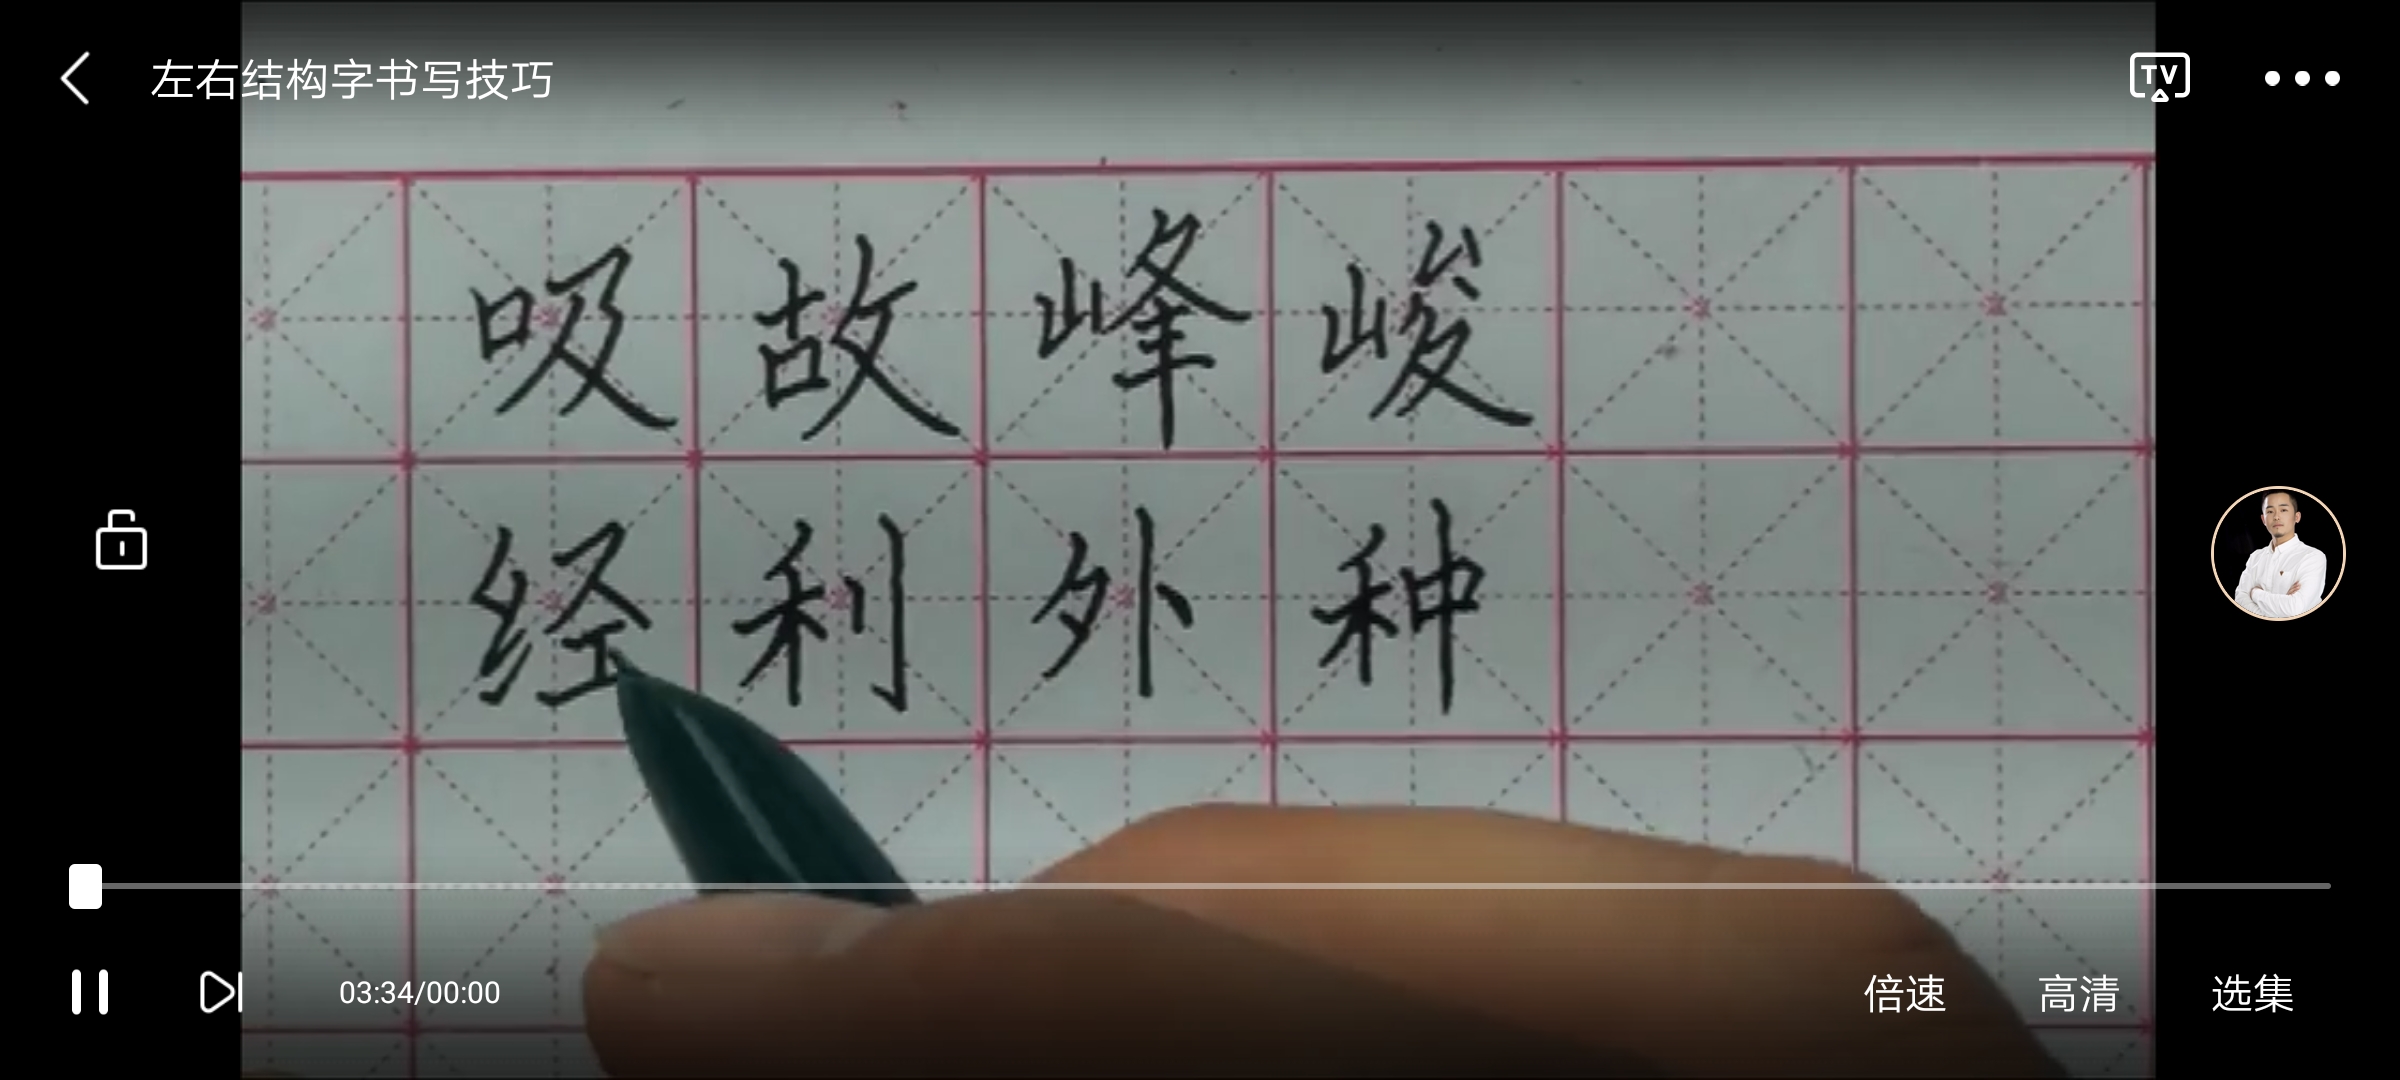 左右结构字书写技巧
TV
吸故峰峻
经利外种
03:34/00:00
倍速 高清 选集